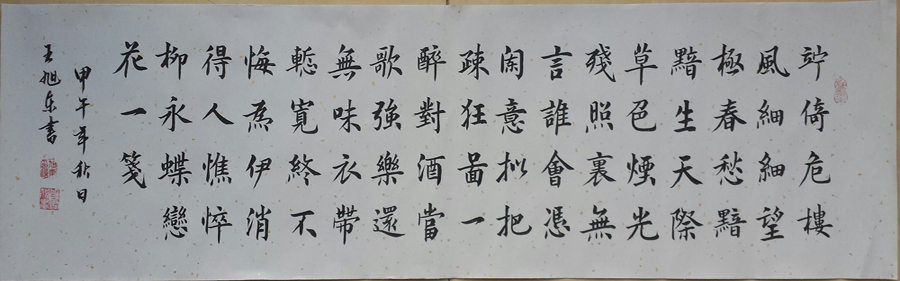 竚倚危樓
風細細望
極春愁黯
黯生天際
草色煙光
殘照裏無
言誰會憑
闌意拟把
疎狂啚一
醉對酒當
歌強樂還
無味衣帶
漸寬終不
悔為伊消
得人憔悴
柳永蝶戀
花一箋
甲午年秋日
王旭东書